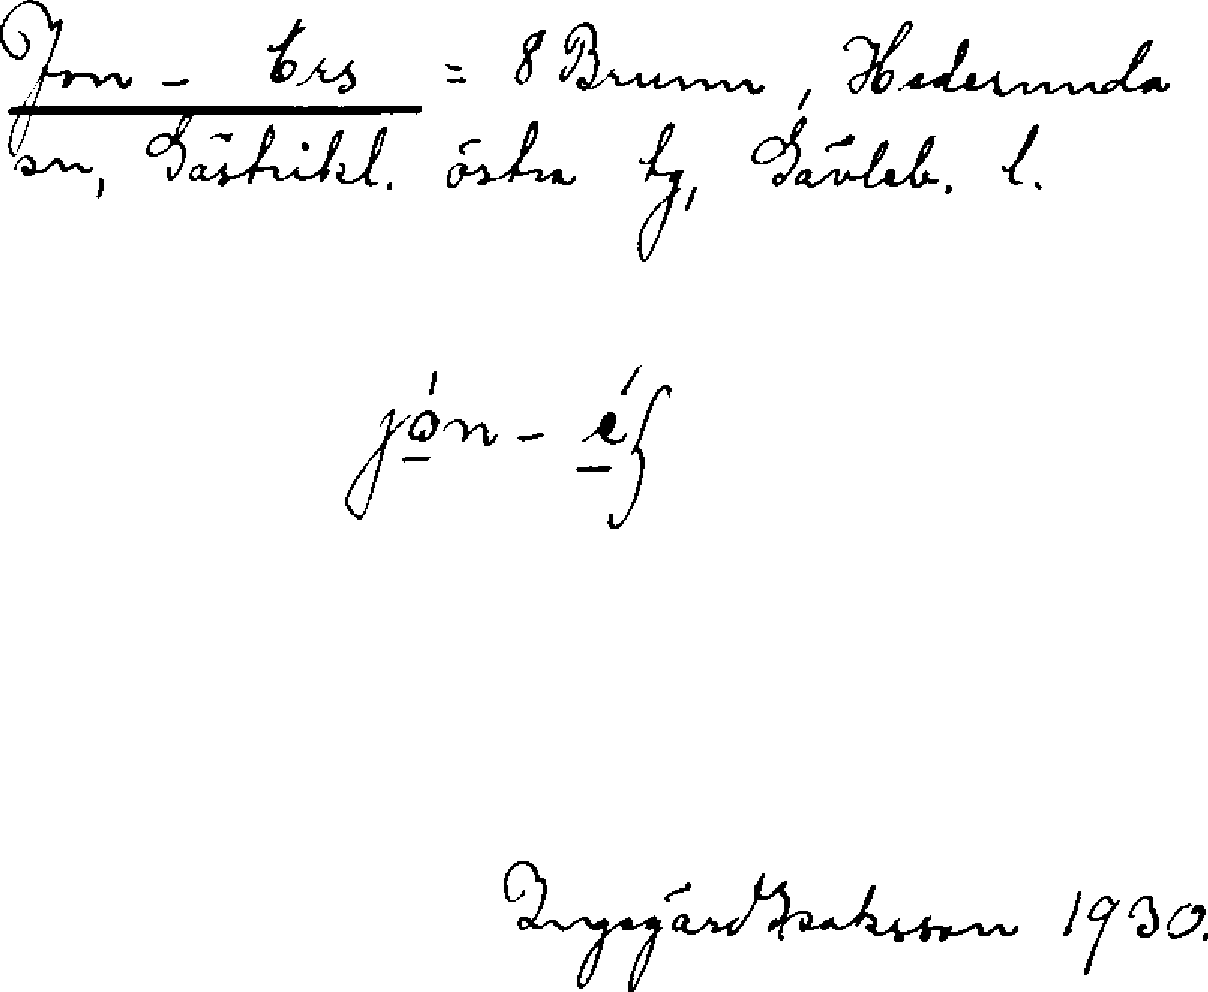 Jon - Ers = 8 Brunn, Hedesunda
sn, Gästrikl. östra tg, Gävleb. l.
jón - é
Ingegärd Isaksson 1930.